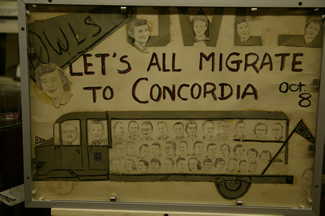 OWLS
OWLS
LET'S ALL MIGRATE
TO CONCORDIA Oct 8